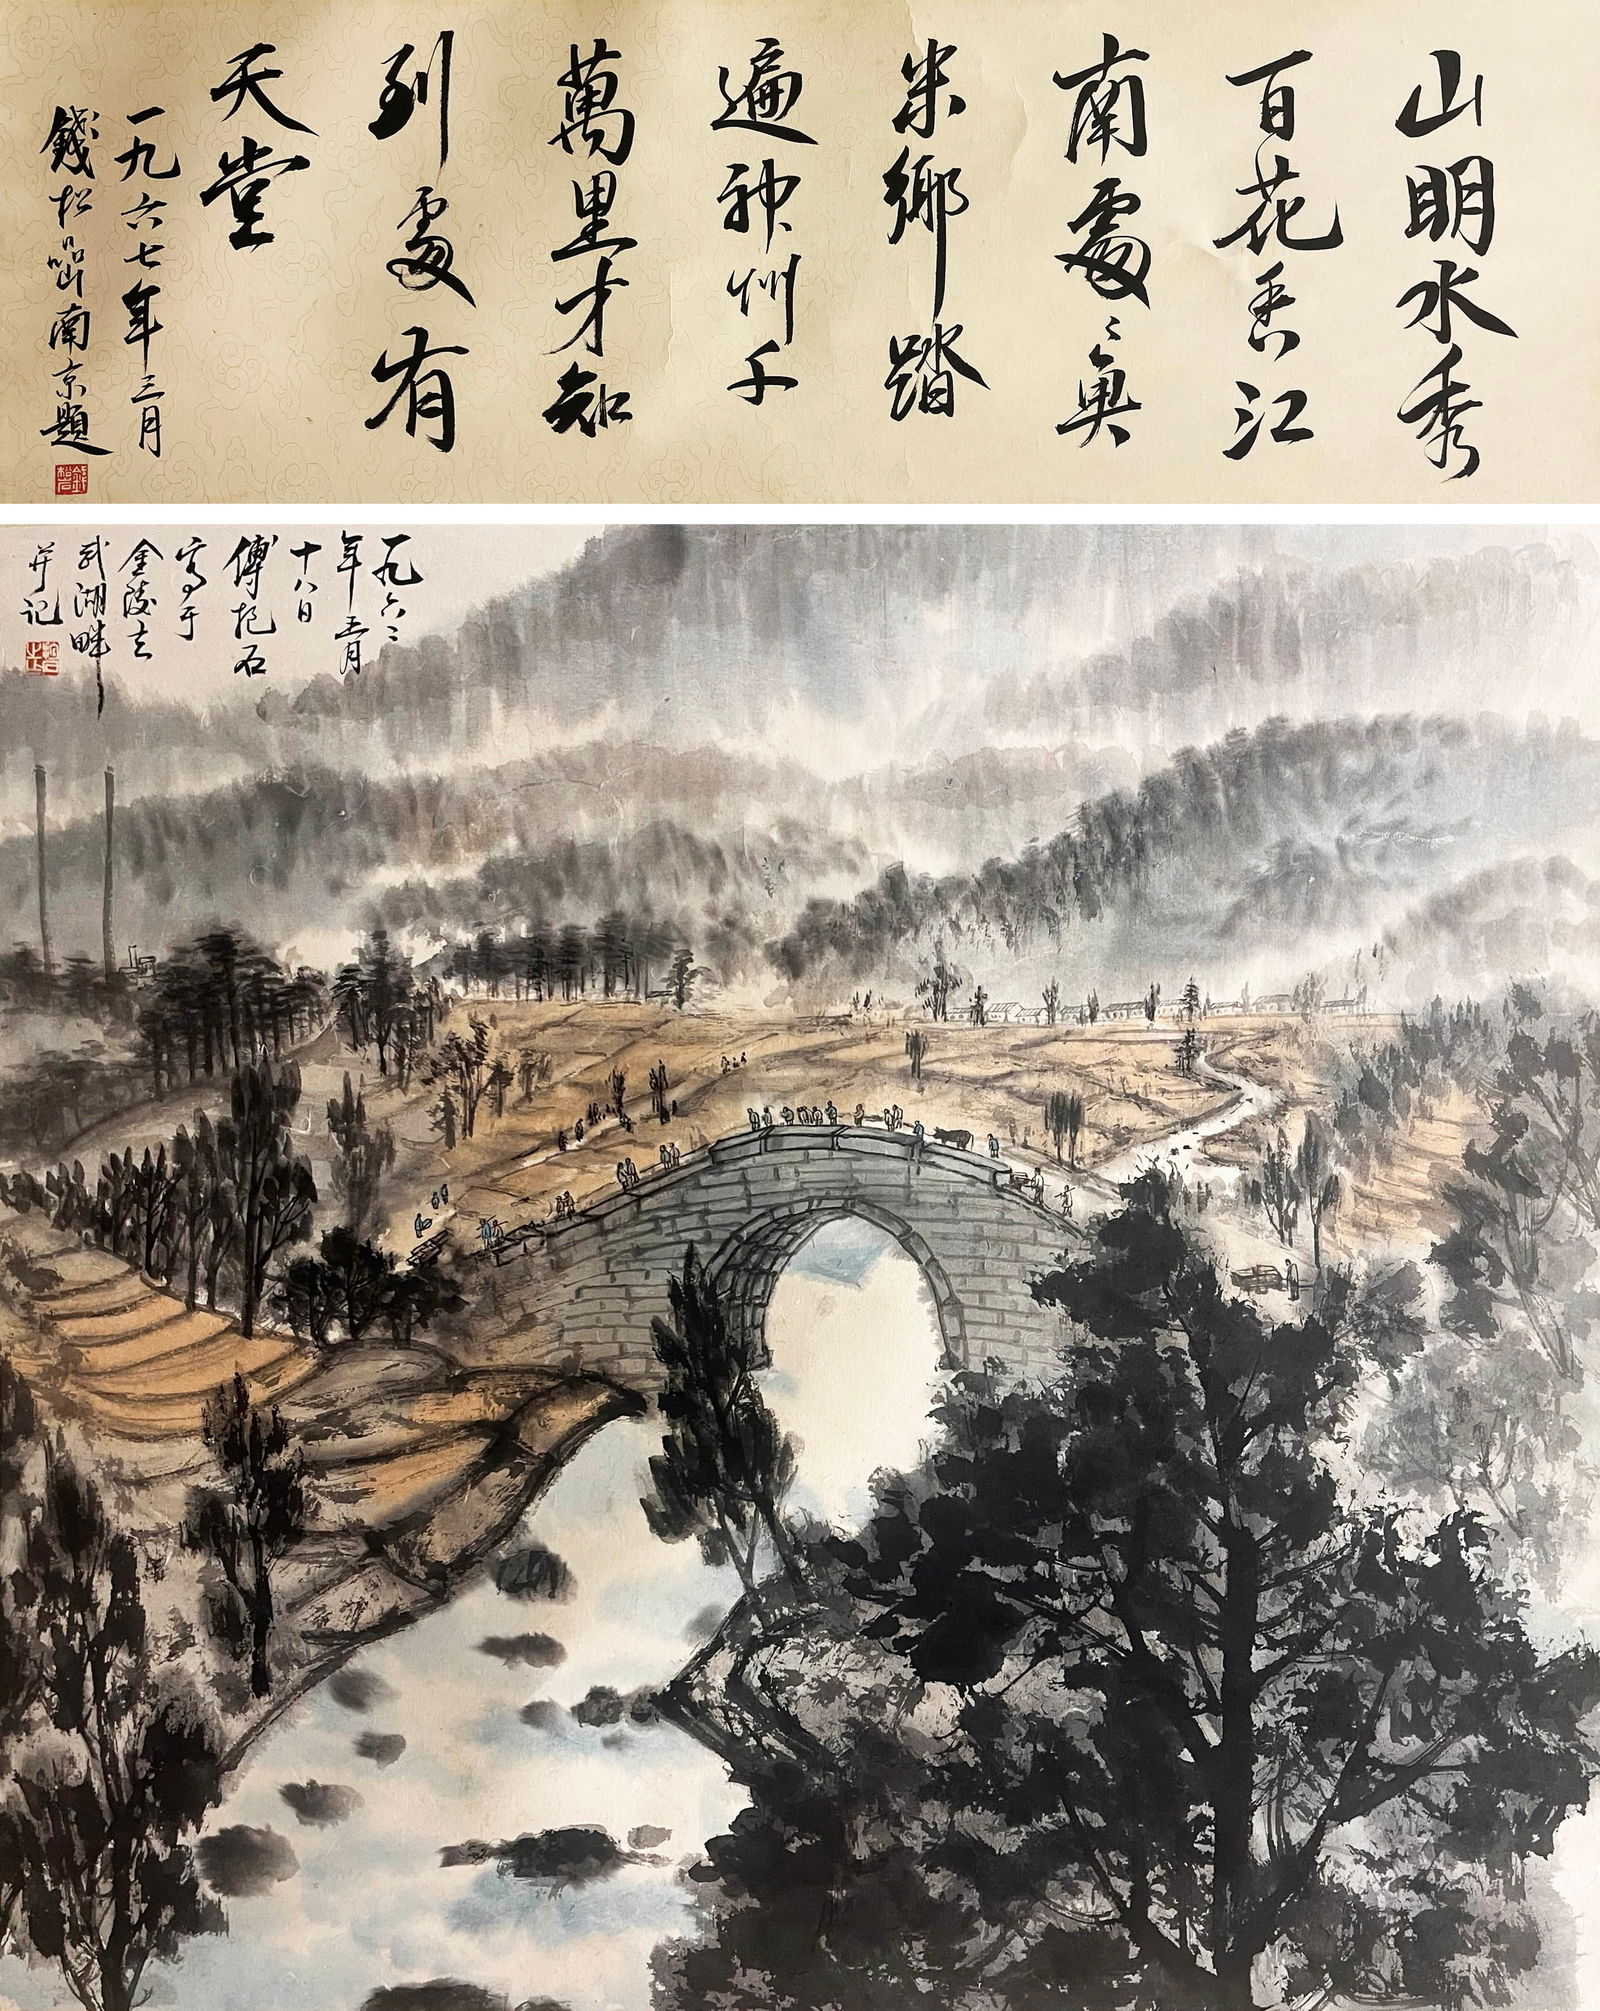 山明水秀
百花香江
南處〻魚
米鄉踏
遍神州千
萬里才知
到處有
天堂
一九六七年三月
錢松喦南京題
一九六二
年五月
十八日
傅抱石
寫于
金陵玄
武湖畔
并记